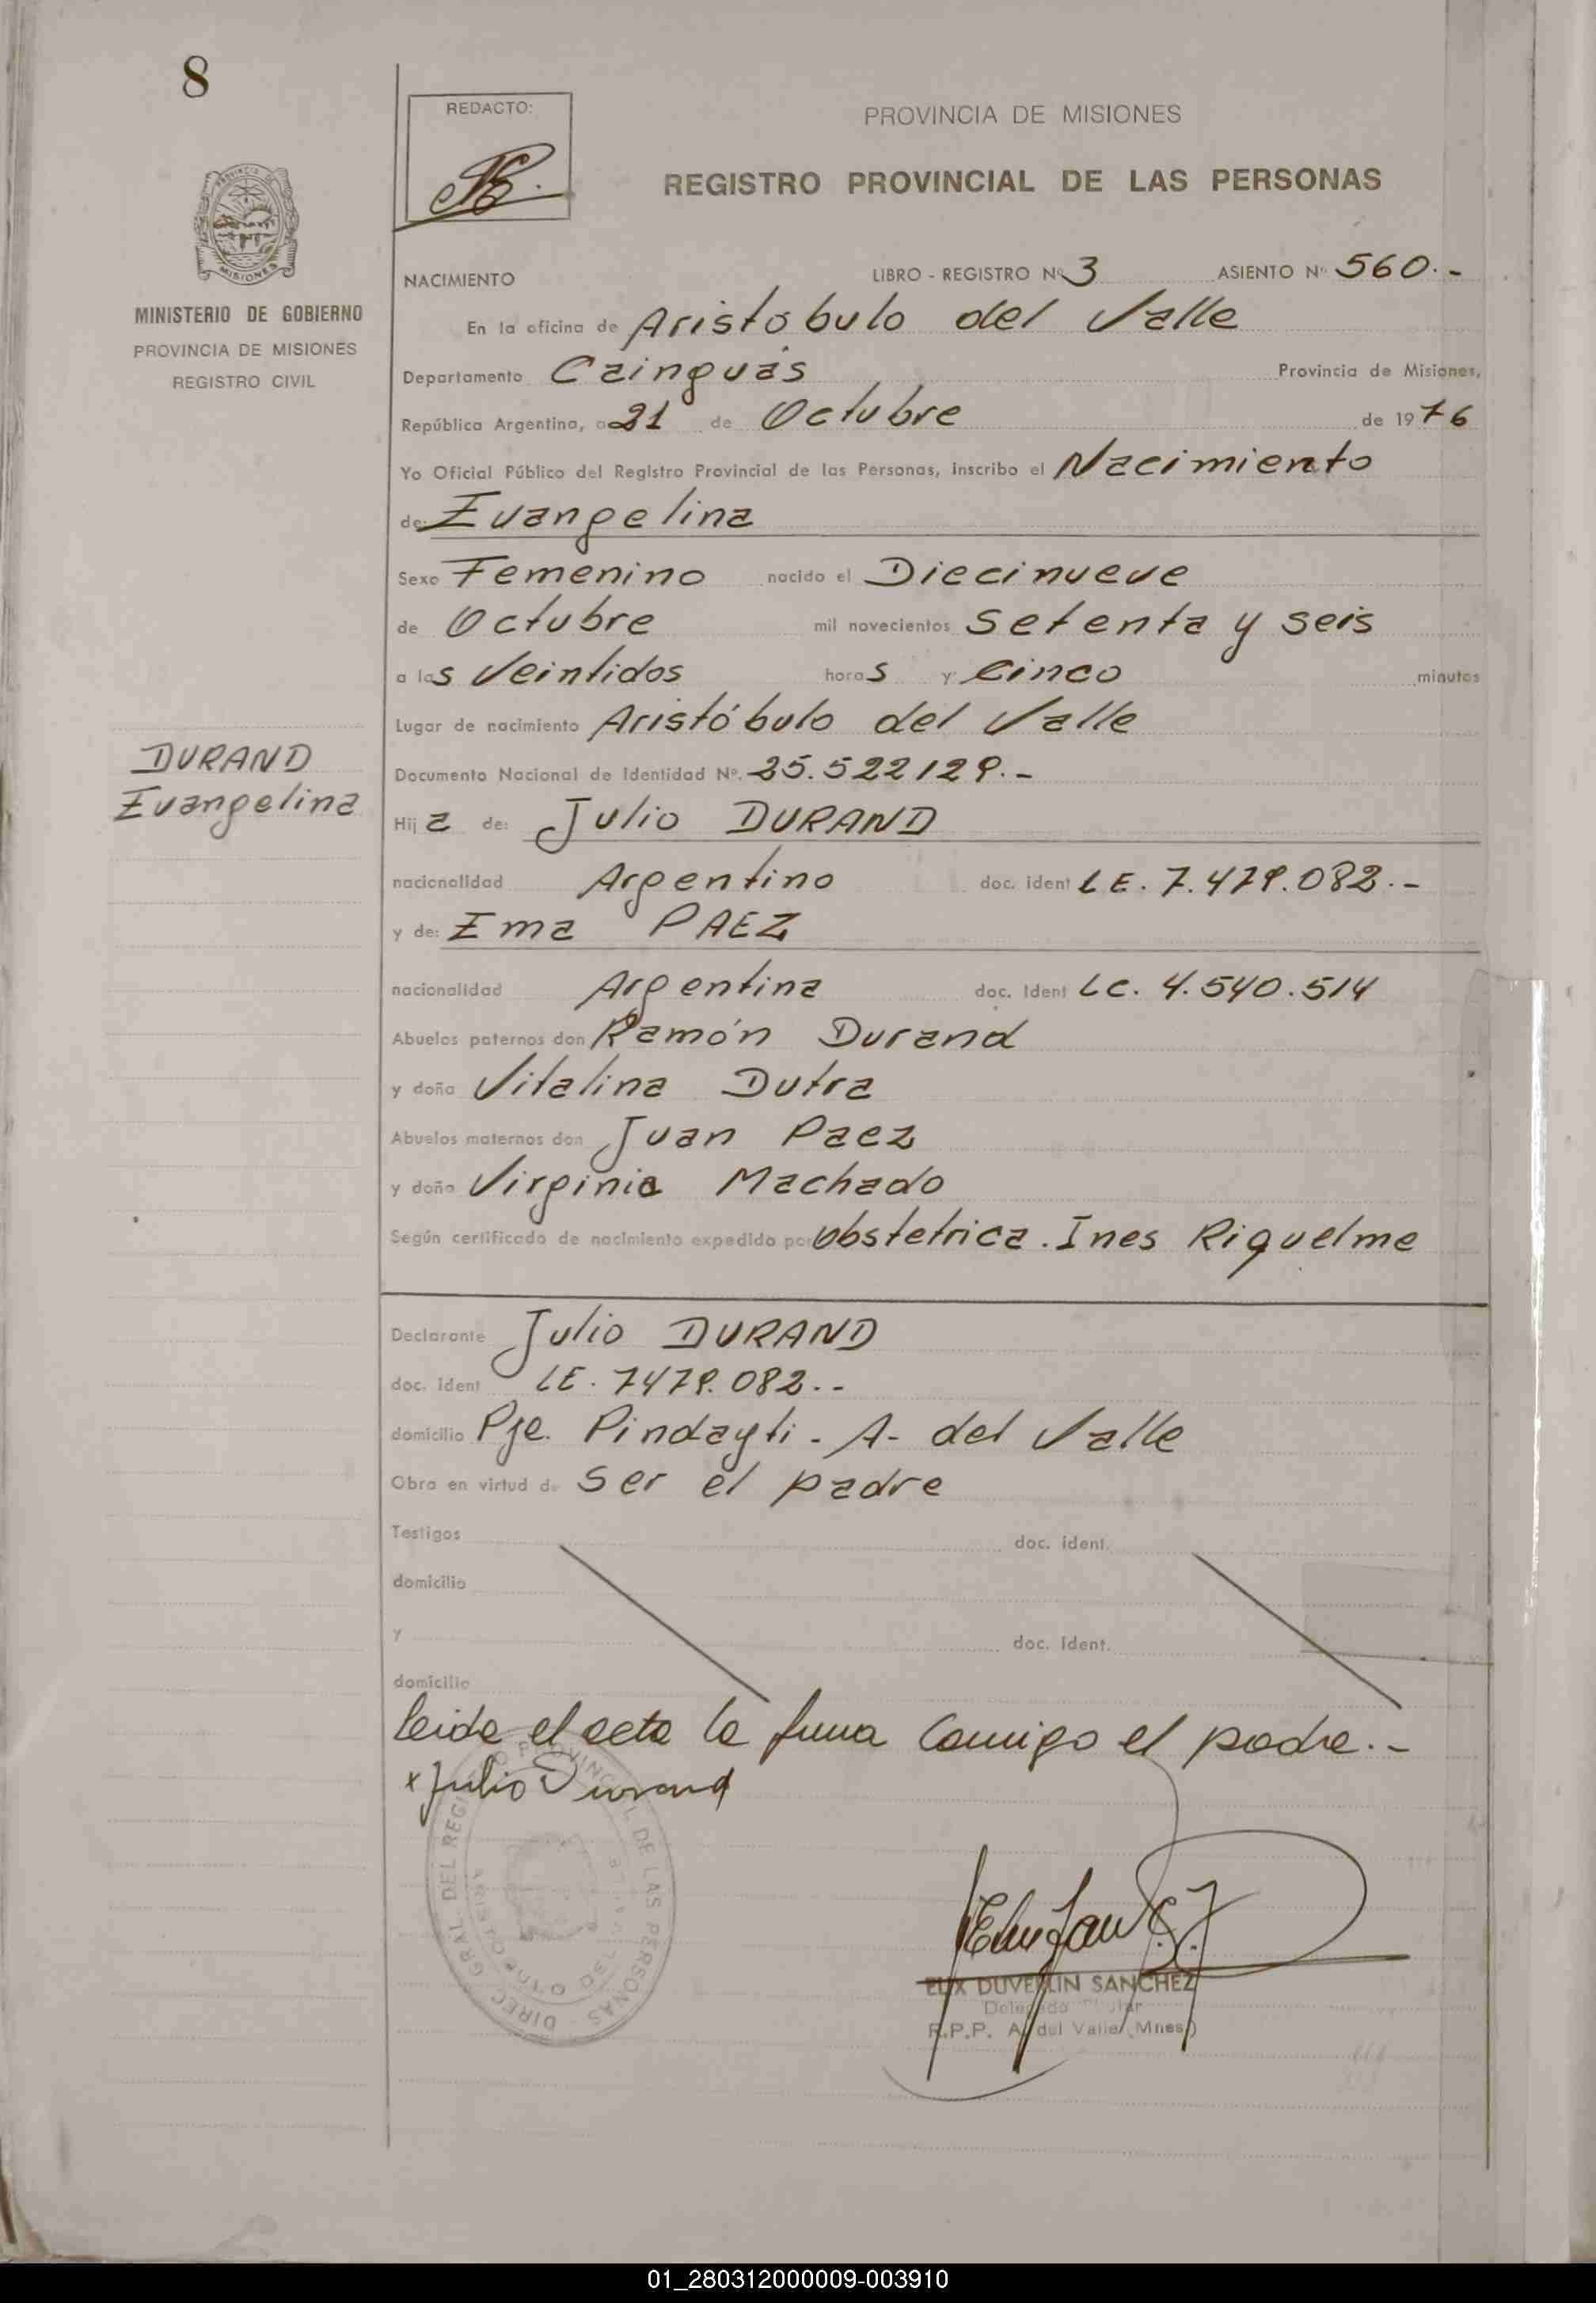 8
REDACTO:
PROVINCIA DE MISIONES
REGISTRO PROVINCIAL DE LAS PERSONAS
MISIONES
MINISTERIO DE GOBIERNO
PROVINCIA DE MISIONES
REGISTRO CIVIL
NACIMIENTO LIBRO - REGISTRO Nº 3 ASIENTO Nº 560.-
En la oficina de Aristóbulo del Valle
Departamento Cainguás Provincia de Misiones,
República Argentina, a 21 de Octubre de 1976
Yo Oficial Público del Registro Provincial de las Personas, inscribo el Nacimiento
de: Evangelina
Sexo Femenino nacido el Diecinueve
de Octubre mil novecientos setenta y seis
a las Veintidos horas y Cinco minutos
Lugar de nacimiento Aristóbulo del Valle
DURAND
Evangelina
Documento Nacional de Identidad Nº. 25.522129.-
Hija de: Julio DURAND
nacionalidad Argentino doc. ident LE. 7.479.082.-
y de: Ema PAEZ
nacionalidad Argentina doc. Ident LC. 4.540.514
Abuelos paternos don Ramón Durand
y doña Vitalina Dutra
Abuelos maternos don Juan Paez
y doña Virginia Machado
Según certificado de nacimiento expedido por Obstetrica. Ines Riquelme
Declarante Julio DURAND
doc. ident LE. 7479.082.-
domicilio Pje. Pindayti - A- del Valle
Obra en virtud de Ser el padre
Testigos doc. ident.
domicilio
y doc. ident.
domicilio
leida el acta la firma comigo el padre.-
x Julio Durand
DIREC. GRAL. DEL REGISTRO PROVINCIAL DE LAS PERSONAS
ELIX DUVERLIN SANCHEZ
Delegado Titular
R.P.P. A. del Valle (Mnes.)
01_280312000009-003910